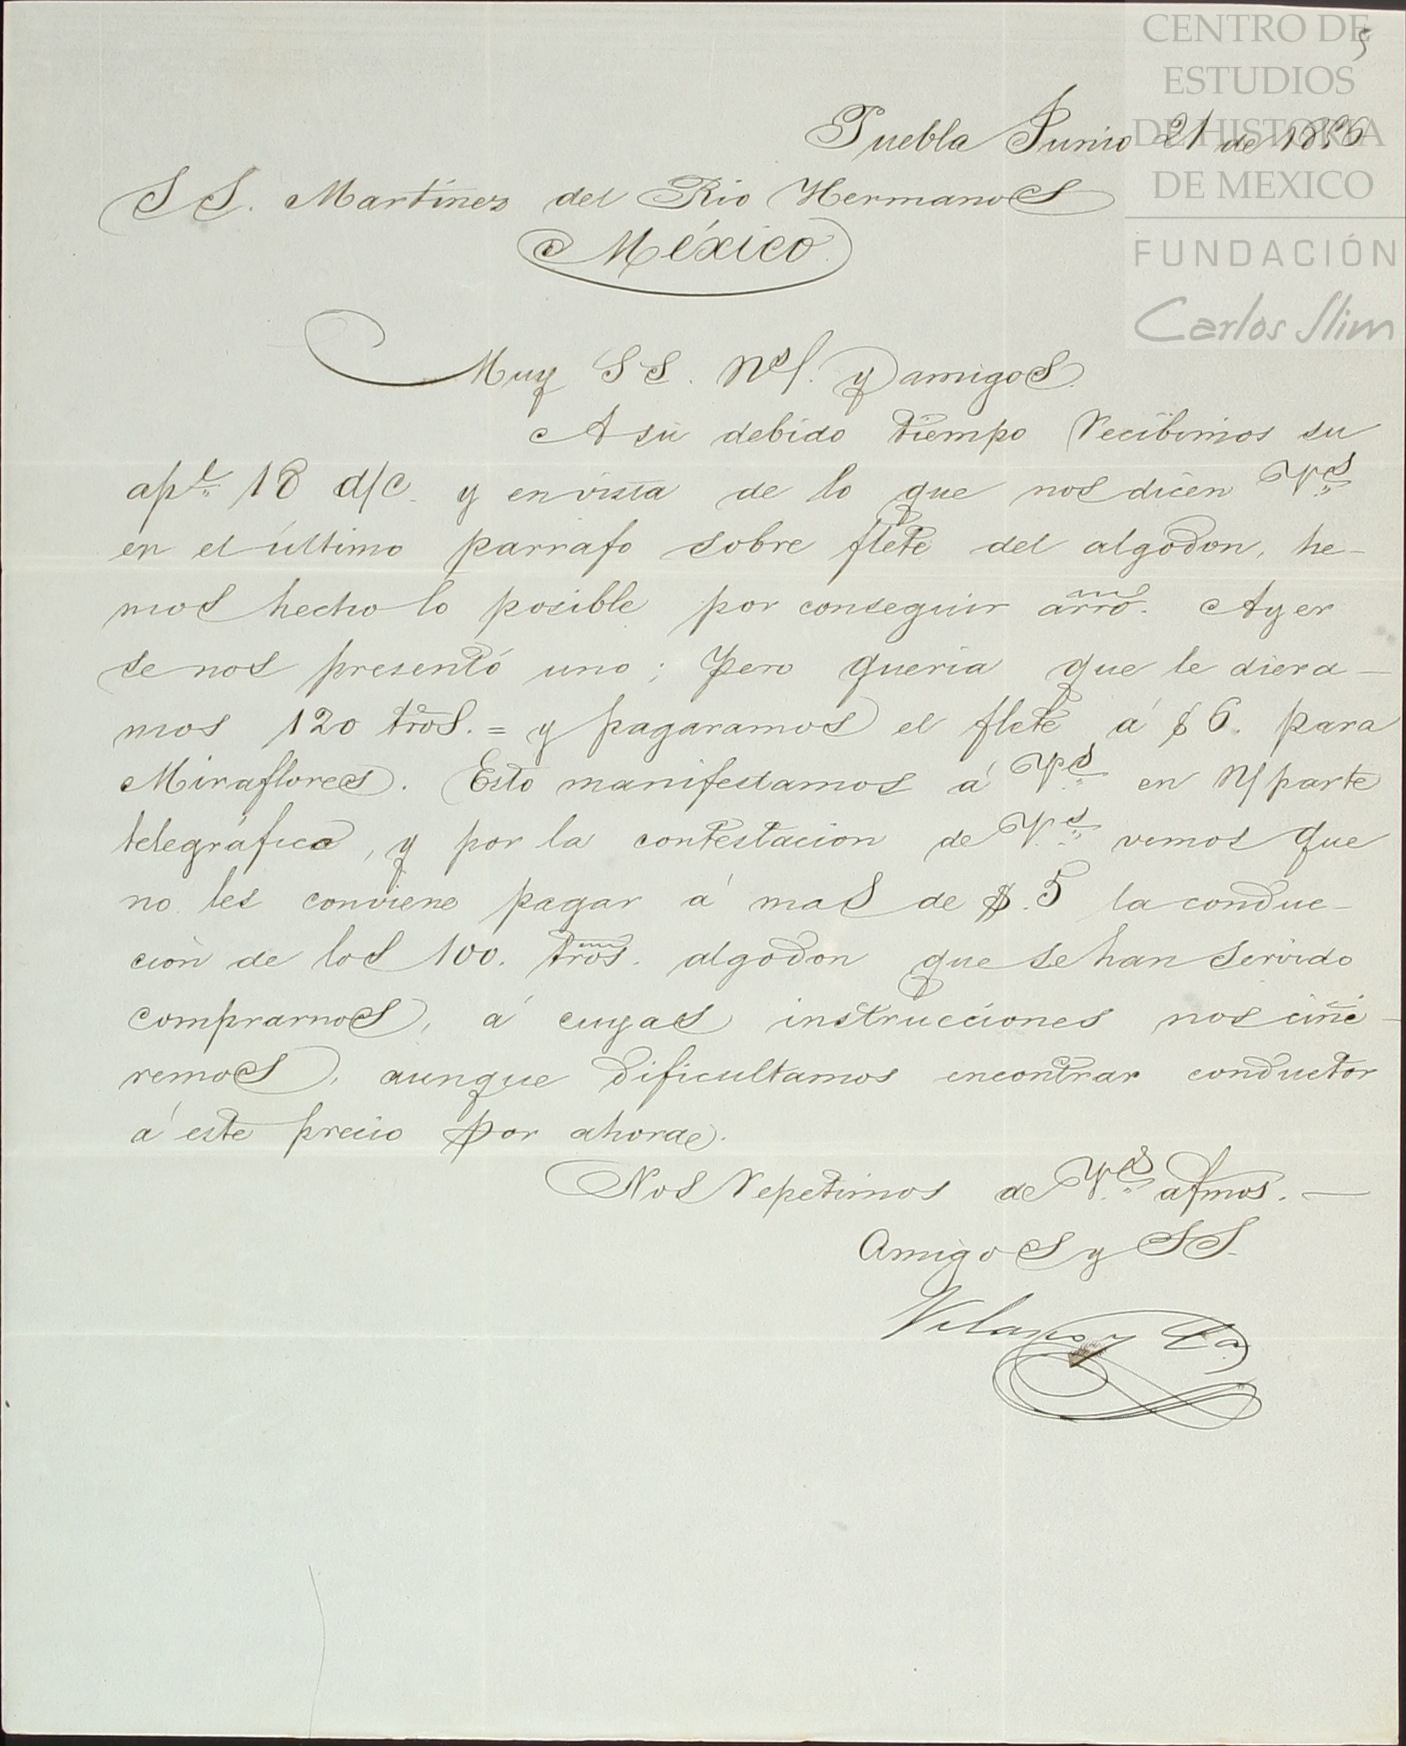 CENTRO DE
ESTUDIOS
DE HISTORIA
DE MEXICO
FUNDACIÓN
Carlos Slim
5
Puebla Junio 21 de 1856
SS. Martinez del Rio Hermanos
México
Muy SS. Ns/. y amigos.
A su debido tiempo recibimos su
apl. 18 d/c. y en vista de lo que nos dicen Vs.
en el último parrafo sobre flete del algodon, he-
mos hecho lo posible por conseguir arro. Ayer
se nos presentó uno; pero queria que le diera-
mos 120 tros. = y pagaramos el flete á $6. para
Miraflores. Esto manifestamos á Vs. en N/ parte
telegráfica, y por la contestacion de Vs. vemos que
no les conviene pagar á mas de $.5 la conduc-
cion de los 100. tros. algodon que se han servido
comprarnos, á cuyas instrucciones nos ciñe-
remos, aunque dificultamos encontrar conductor
á este precio por ahora.
Nos repetimos de Vs. afmos. —
Amigos y SS.
Velasco y Ca.